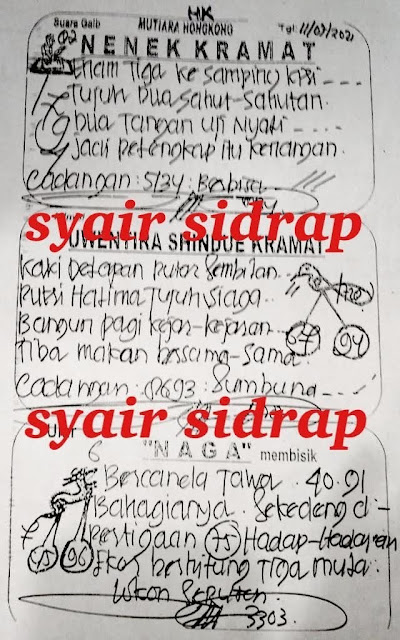 HK
Suara Gaib MUTIARA HONGKONG Tgl: 11/07/2021
NENEK KRAMAT
Enam Tiga ke Samping kiri
Tujuh Dua Sahut-Sahutan
Dua Tangan Uji Nyali
Jadi pelengkap itu kenangan
Cadangan: 5134:
syair sidrap
UWENTIRA SHINDUE KRAMAT
kaki Delapan putar Sembilan
putri Halima Tujuh Siaga
Bangun pagi kejar-kejaran
67 94
Tiba makan bersama-sama
Cadangan: 0693: Sumbuna
syair sidrap
6
"NAGA" membisik
Bercanda Tawa 40.91
Bahagianya di-
pertigaan 75 Hadap-
berhitung Tiga
3303